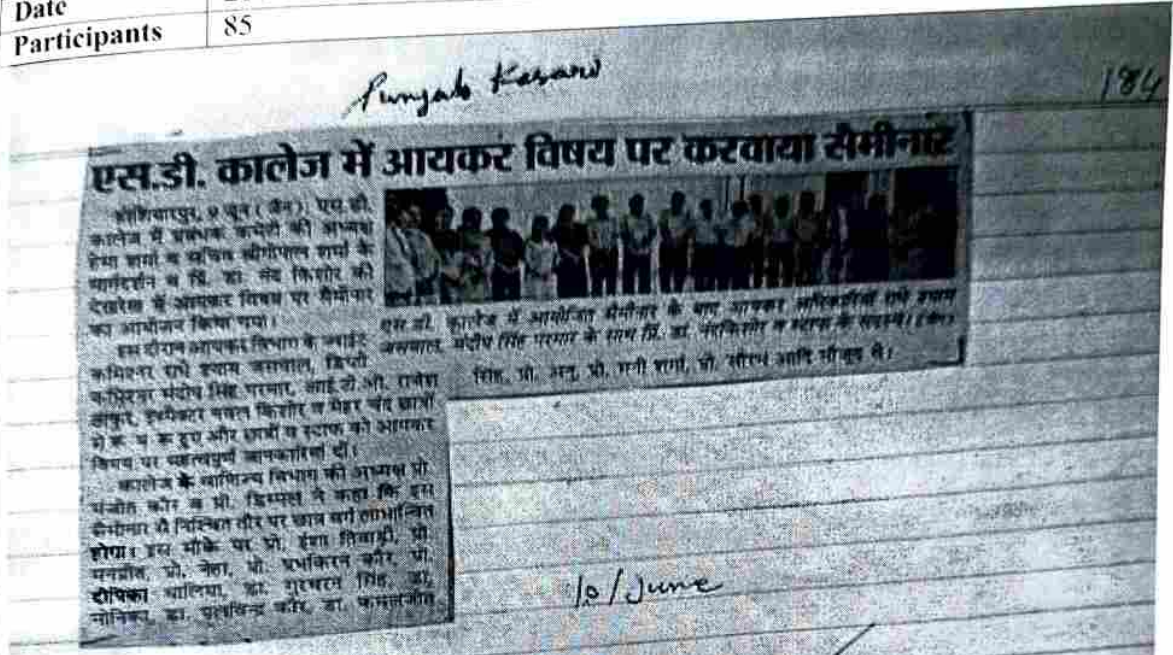 Date
Participants 85
Punjab Kesari
184
एस.डी. कालेज में आयकर विषय पर करवाया सैमीनार
होशियारपुर, 9 जून (जैन): एस.डी.
कालेज में प्रबंधक कमेटी की अध्यक्ष
हेमा शर्मा व सचिव श्रीगोपाल शर्मा के
मार्गदर्शन व प्रिं. डा. नंद किशोर की
देखरेख में आयकर विषय पर सैमीनार
का आयोजन किया गया।
इस दौरान आयकर विभाग के ज्वाईंट
कमिश्नर राधे श्याम जसवाल, डिप्टी
कमिश्नर मंदीप सिंह परमार, आई.टी.ओ. राजेश
ठाकुर, इंस्पैक्टर नवल किशोर व मेहर चंद छात्रों
से रू-ब-रू हुए और छात्रों व स्टाफ को आयकर
विषय पर महत्वपूर्ण जानकारियां दीं।
कालेज के वाणिज्य विभाग की अध्यक्ष प्रो.
मंजीत कौर व प्रो. डिम्पल ने कहा कि इस
सैमीनार से निश्चित तौर पर छात्र वर्ग लाभान्वित
होगा। इस मौके पर प्रो. ईशा तिवाड़ी, प्रो.
मनप्रीत, प्रो. नेहा, प्रो. प्रभकिरन कौर, प्रो.
दीपिका वालिया, डा. गुरचरन सिंह, डा.
मोनिका, डा. पलविन्द्र कौर, डा. कमलजीत
एस.डी. कालेज में आयोजित सैमीनार के बाद आयकर अधिकारियों राधे श्याम
जसवाल, मंदीप सिंह परमार के साथ प्रिं. डा. नंदकिशोर व स्टाफ के सदस्य। (जैन)
सिंह, प्रो. अनु, प्रो. शर्मा, प्रो. सौरभ आदि मौजूद थे।
10/June